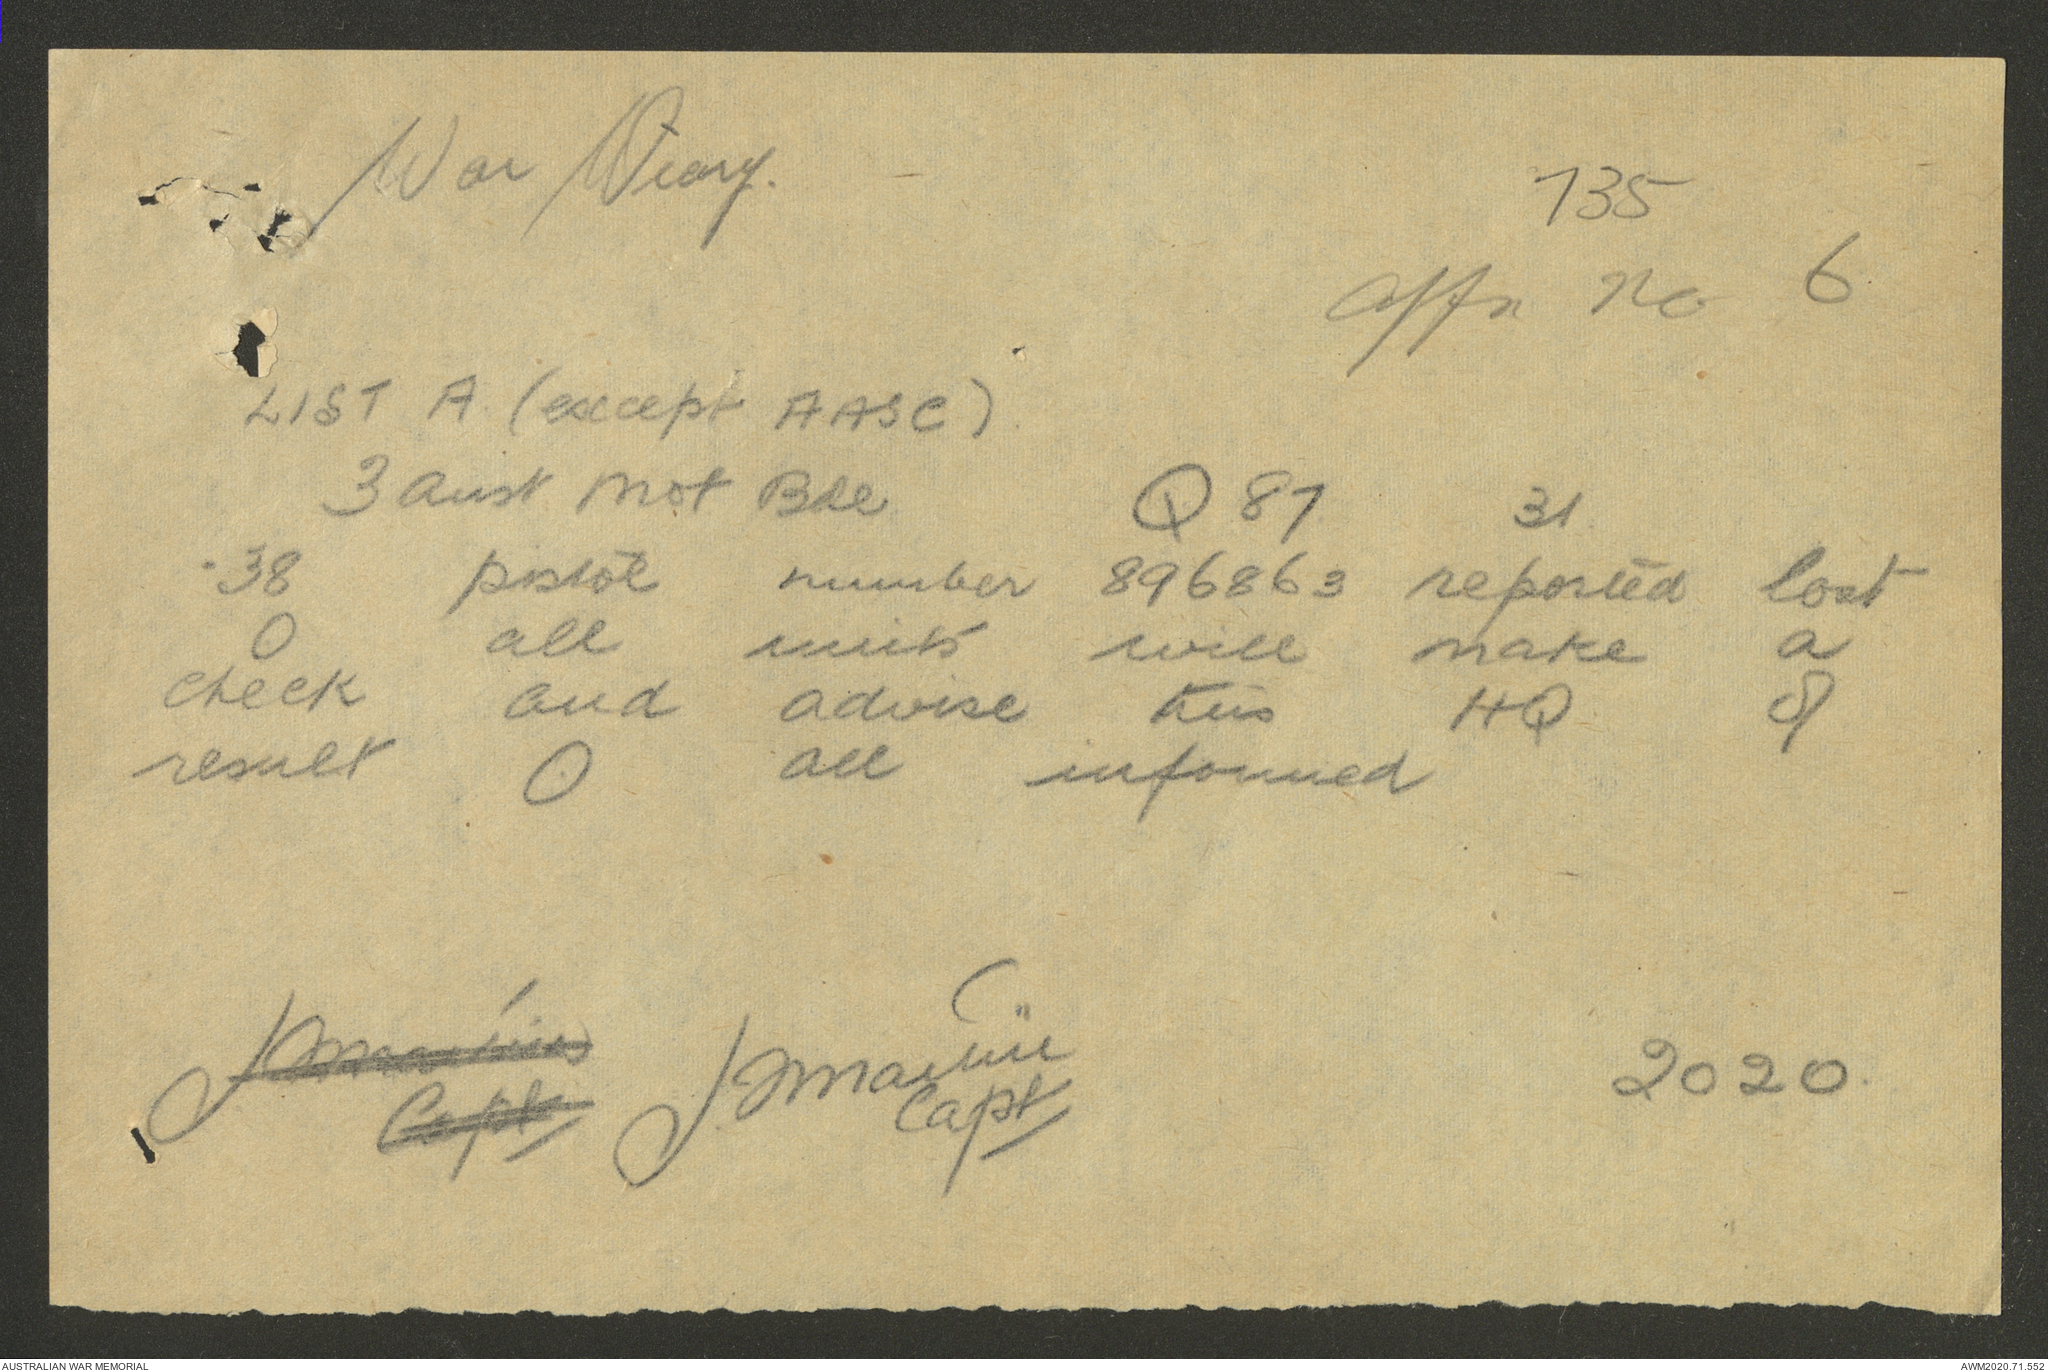 War Diary.
135
Appx No 6
LIST A (except AASC)
3 Aust Mot Bde Q 87 31
.38 pistol number 896863 reported lost
O all units will make a
check and advise this HQ of
result O all informed
Capt
Capt
2020.
AUSTRALIAN WAR MEMORIAL
AWM2020.71.552